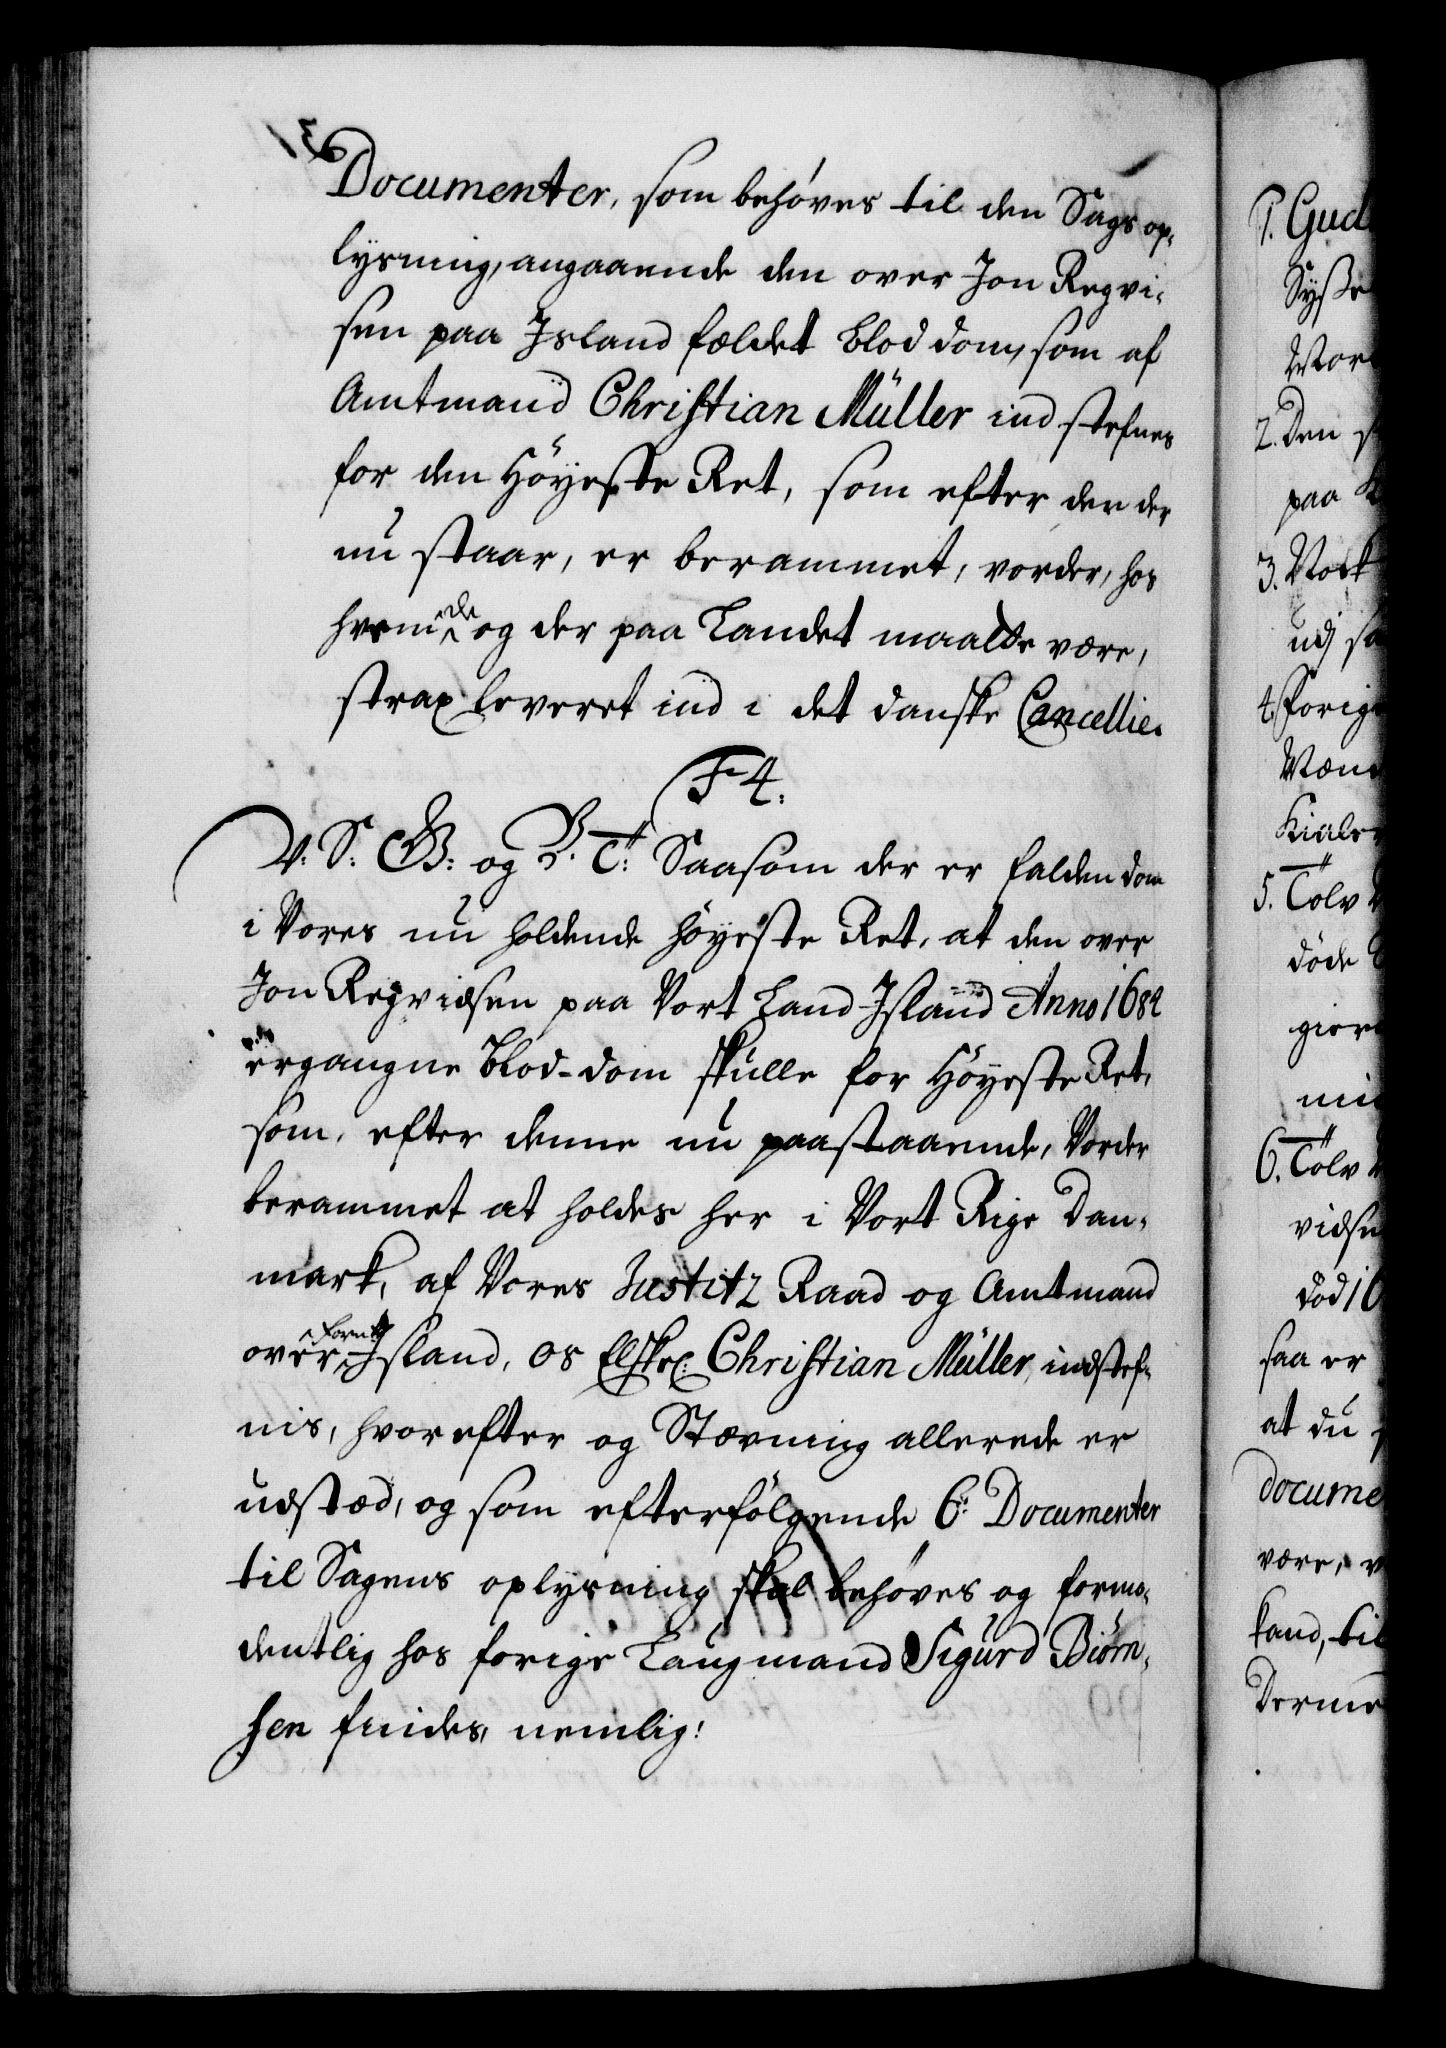 Documenter, som behøves til den Sags op-
lysning, angaaende den over Jon Regvi-
sen paa Jsland fældet blod dom, som af
Amtmand Christian Müller ind stefnes
for den Höyeste Ret, som efter den der
nu staar, er berammet, vorder, hos
hvem de og der paa Landet maatte være,
strax leveret ind i det danske Cancellie.
F 4.
V: S: G: og B: T: Saasom der er falden dom
i Vores nu holdende höyeste Ret, at den over
Jon Regvidsen paa Vort Land Jsland Anno 1684
ergangne blod-dom skulle for Höyeste Ret,
som, efter denne nu paastaaende, Vorder
berammet at holdes her i Vort Rige Dan-
mark, af Vores Justitz Raad og Amtmand
over fornte Jsland, os Elskel: Christian Müller, indstef-
nis, hvorefter og Stævning allerede er
udstæd, og som efterfölgende 6: Documenter
til Sagens oplysning skal behöves og formo-
dentlig hos forige Laugmand Sigurd Biörn-
sen findes, nemlig:
1. Gud
Sysse
Vor
2. Den s
paa
3. Nock
udj sa
4. Forig
Væn
Kialer
5. Tolv
döde
gier
min
6. Tolv
vidse
död 16
saa er
at du
docume
være, v
kand, til
Derme